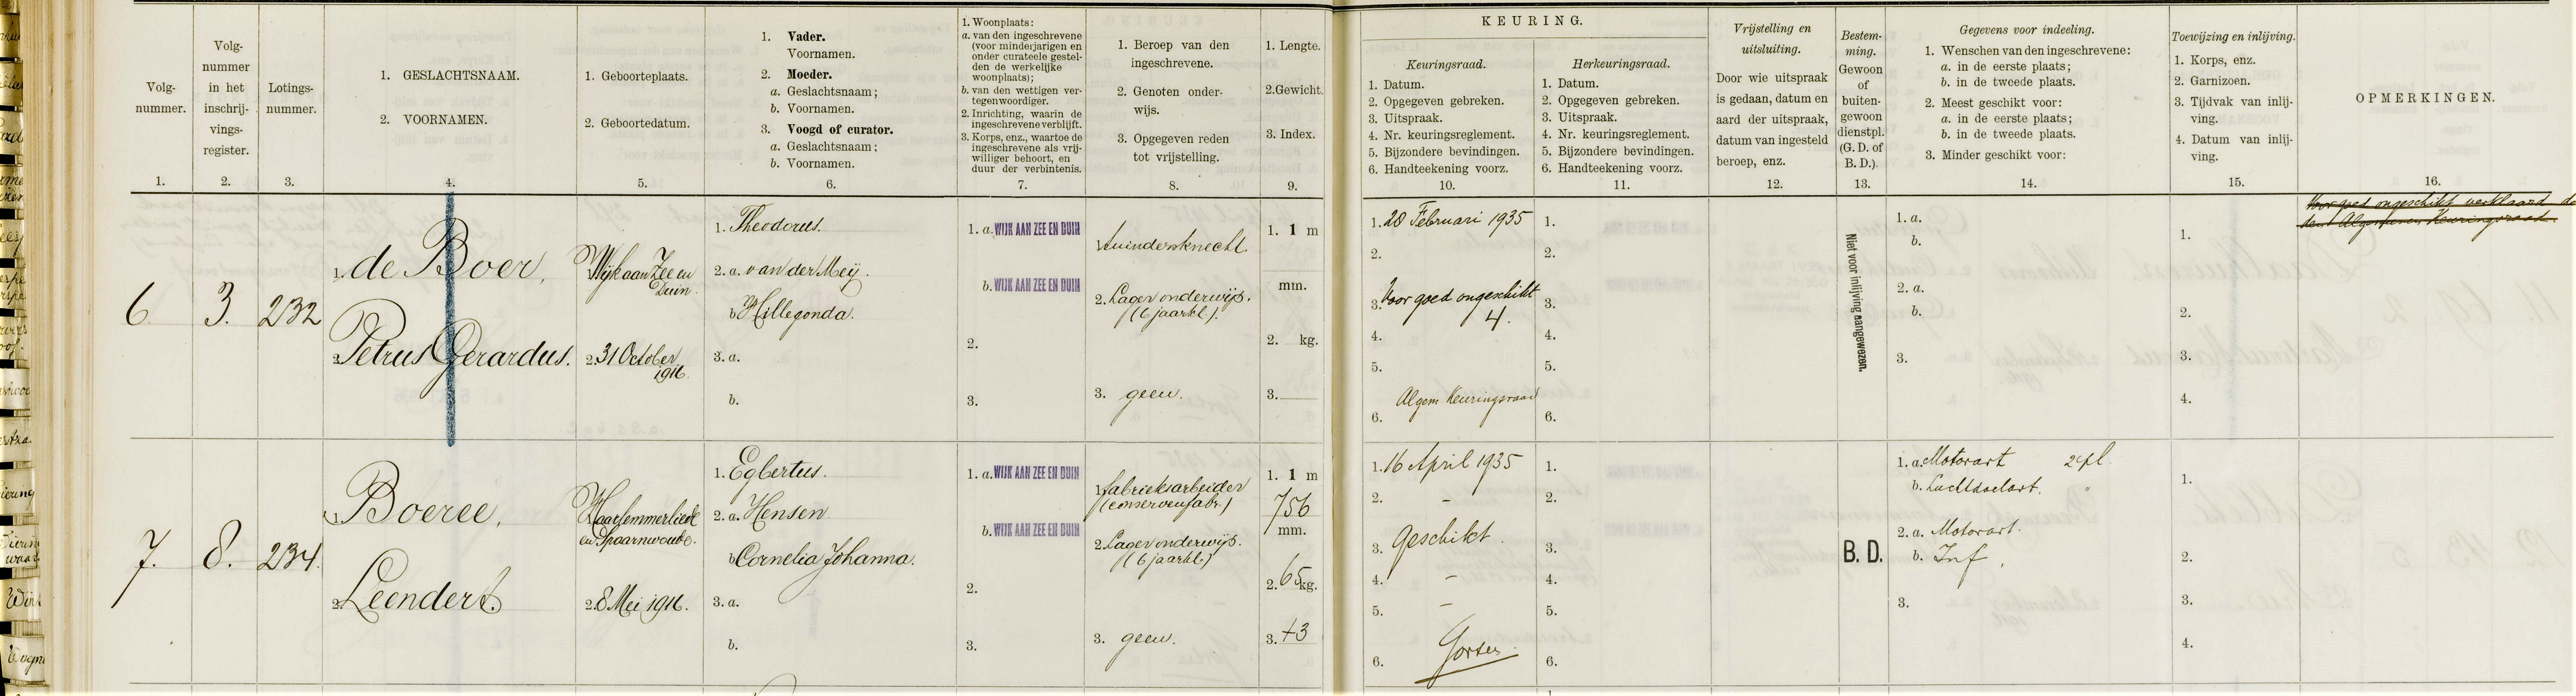 KEURING.
Volg-
nummer.
1.
Volg-
nummer
in het
inschrij-
vings-
register.
2.
Lotings-
nummer.
3.
1. GESLACHTSNAAM.
2. VOORNAMEN.
4.
1. Geboorteplaats.
2. Geboortedatum.
5.
1. Vader.
Voornamen.
2. Moeder.
a. Geslachtsnaam;
b. Voornamen.
3. Voogd of curator.
a. Geslachtsnaam;
b. Voornamen.
6.
1. Woonplaats:
a. van den ingeschrevene
(voor minderjarigen en
onder curateele gestel-
den de werkelijke
woonplaats);
b. van den wettigen ver-
tegenwoordiger.
2. Inrichting, waarin de
ingeschrevene verblijft.
3. Korps, enz., waartoe de
ingeschrevene als vrij-
williger behoort, en
duur der verbintenis.
7.
1. Beroep van den
ingeschrevene.
2. Genoten onder-
wijs.
3. Opgegeven reden
tot vrijstelling.
8.
1. Lengte.
2. Gewicht.
3. Index.
9.
Keuringsraad.
1. Datum.
2. Opgegeven gebreken.
3. Uitspraak.
4. Nr. keuringsreglement.
5. Bijzondere bevindingen.
6. Handteekening voorz.
10.
Herkeuringsraad.
1. Datum.
2. Opgegeven gebreken.
3. Uitspraak.
4. Nr. keuringsreglement.
5. Bijzondere bevindingen.
6. Handteekening voorz.
11.
Vrijstelling en
uitsluiting.
Door wie uitspraak
is gedaan, datum en
aard der uitspraak,
datum van ingesteld
beroep, enz.
12.
Bestem-
ming.
Gewoon
of
buiten-
gewoon
dienstpl.
(G. D. of
B. D.).
13.
Gegevens voor indeeling.
1. Wenschen van den ingeschrevene:
a. in de eerste plaats;
b. in de tweede plaats.
2. Meest geschikt voor:
a. in de eerste plaats;
b. in de tweede plaats.
3. Minder geschikt voor:
14.
Toewijzing en inlijving.
1. Korps, enz.
2. Garnizoen.
3. Tijdvak van inlij-
ving.
4. Datum van inlij-
ving.
15.
OPMERKINGEN.
16.
6
3.
232
1. de Boer,
2. Petrus Gerardus.
1. Wijk aan Zee en
Duin.
2. 31 October
1916.
1. Theodorus.
2. a. van der Meij.
b. Hillegonda.
3. a.
b.
1. a. WIJK AAN ZEE EN DUIN
b. WIJK AAN ZEE EN DUIN
2.
3.
1. tuindersknecht.
2. Lager onderwijs.
(6 jaarkl.).
3. geen.
1. 1 m
mm.
2. kg.
3.
1. 28 Februari 1935
2.
3. Voor goed ongeschikt
4.
4.
5.
Algem. Keuringsraad
6.
1.
2.
3.
4.
5.
6.
Niet voor inlijving aangewezen.
1. a.
b.
2. a.
b.
3.
1.
2.
3.
4.
Voor goed ongeschikt verklaard do
den Algemeenen Keuringsraad
7.
8.
234.
1. Boeree,
2. Leendert.
1. Haarlemmerliede
en Spaarnwoude.
2. 8 Mei 1916.
1. Egbertus.
2. a. Hensen
b. Cornelia Johanna.
3. a.
b.
1. a. WIJK AAN ZEE EN DUIN
b. WIJK AAN ZEE EN DUIN
2.
3.
1. fabrieksarbeider
(conservenfabr.)
2. Lager onderwijs.
(6 jaarkl.)
3. geen.
1. 1 m
756
mm.
2. 65 kg.
3. +3
1. 16 April 1935
2. -
3. Geschikt.
4. -
5. -
6. Gorter.
1.
2.
3.
4.
5.
6.
B. D.
1. a. Motorart 2e pl.
b. Luchtdoelart. "
2. a. Motorart.
b. Inf.
3.
1.
2.
3.
4.